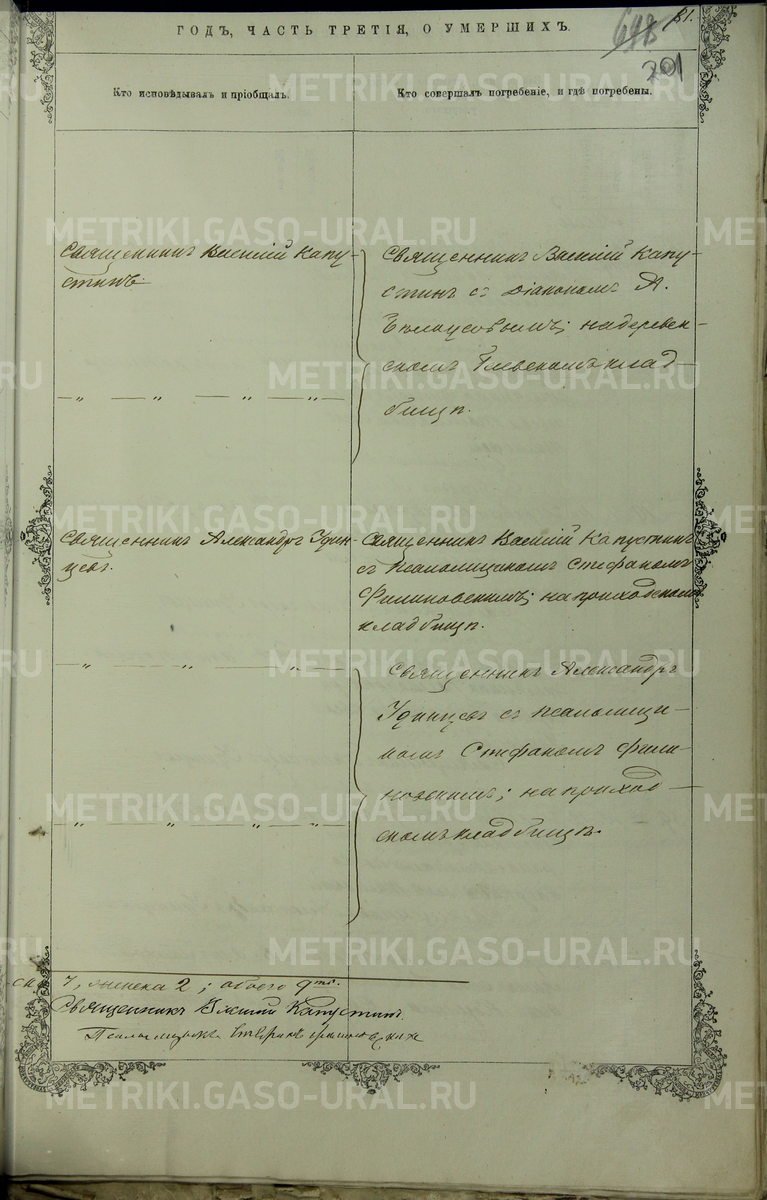 ГОДЪ, ЧАСТЬ ТРЕТІЯ, О УМЕРШИХЪ.
648
81.
201
Кто исповѣдывалъ и пріобщалъ.
Кто совершалъ погребеніе, и гдѣ погребены.
Священникъ Василій Капу-
стинъ.
— „ — „ — „ — „ —
Священникъ Василій Капу-
стинъ съ Діакономъ А.
Бѣлоусовымъ; на деревен-
скомъ клад-
бищѣ.
Священникъ Александръ Удин-
цевъ.
Священникъ Василій Капустинъ
съ Псаломщикомъ Стефаномъ
Филиновскимъ; на приходскомъ
кладбищѣ.
— „ — „ — „ —
Священникъ Александръ
Удинцевъ съ Псаломщи-
комъ Стефаномъ Фили-
новскимъ; на приход-
скомъ кладбищѣ.
„ — „ — „ — „ —
7, женска 2; обоего 9ть.
Священникъ Василій Капустинъ.
Псаломщикъ Стефанъ Филиновскихъ
METRIKI.GASO-URAL.RU